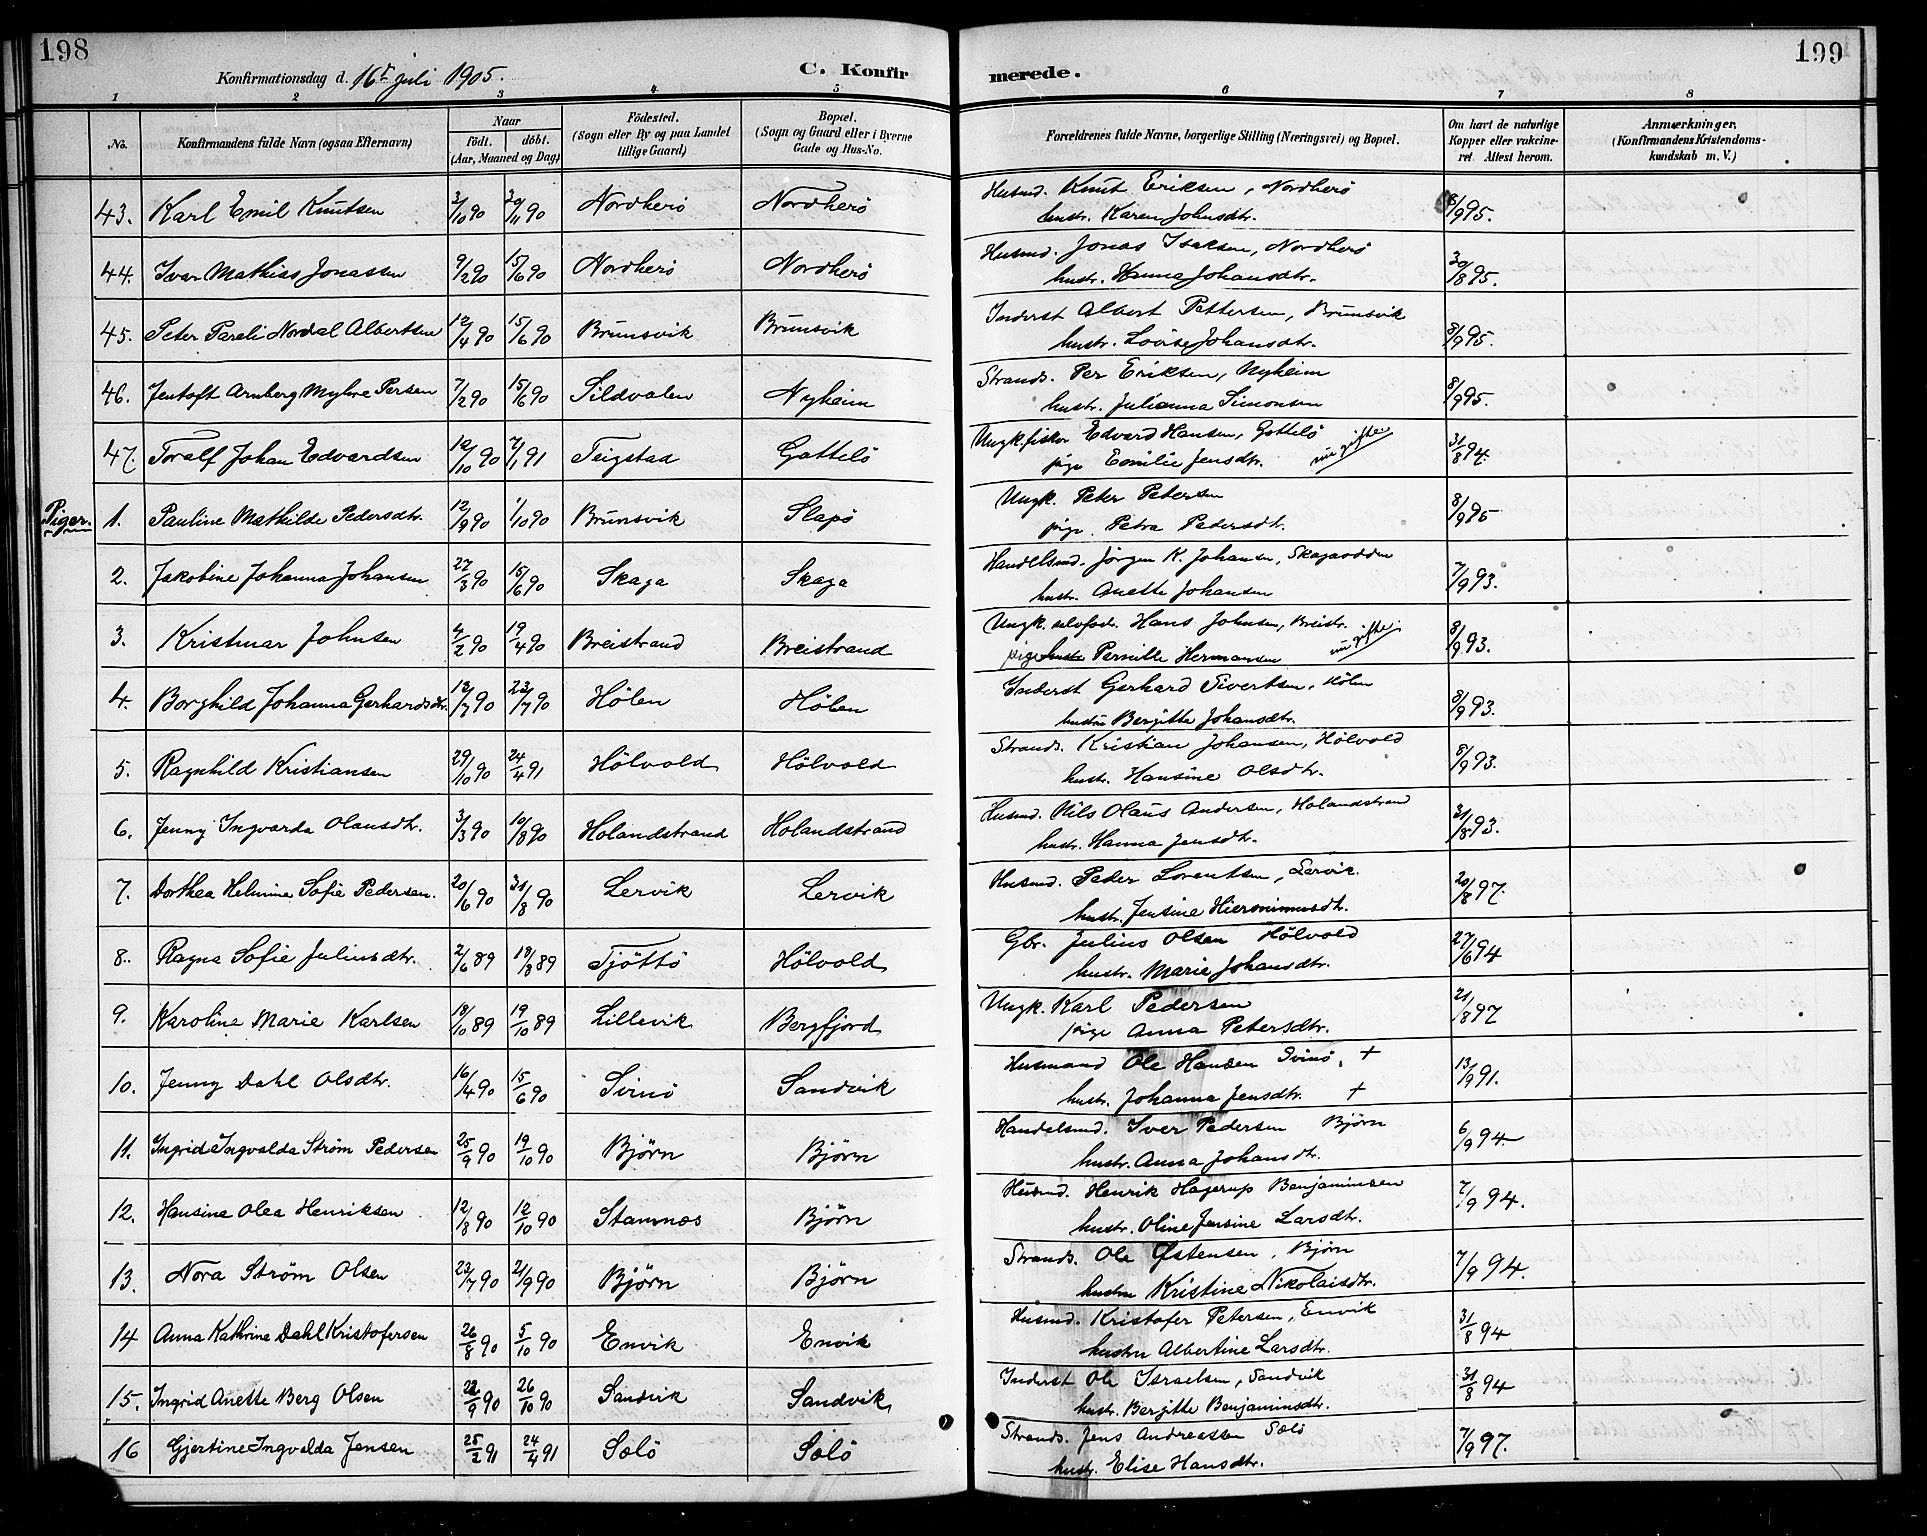 198
Konfirmationsdag d. 16de juli 1905.
C. Konfirmerede.
199
1 2 3 4 5 6 7 8
No.
Konfirmandens fulde Navn (ogsaa Efternavn)
Naar
födt. döbt.
(Aar, Maaned og Dag)
Födested.
(Sogn eller By og paa Landet
tillige Gaard)
Bopæl.
(Sogn og Gaard eller i Byerne
Gade og Hus-No.
Forældrenes fulde Navne, borgerlige Stilling (Næringsvei) og Bopæl.
Om havt de naturlige
Kopper eller vakcine-
ret. Attest herom.
Anmærkninger.
(Konfirmandens Kristendoms-
kundskab m. V.)
43. Karl Emil Knutsen 3/10 90 30/11 90 Nordherö Nordherö Husmd. Knut Eriksen, Nordherö 8/9 95.
hustr. Karen Johnsdtr.
44. Ivar Mathias Jonassen 9/2 90 15/6 90 Nordherö Nordherö Husmd. Jonas Isaksen, Nordherö 30/8 95.
hustr. Hanna Johansdtr.
45. Peter Pareli Nordal Albertsen 12/4 90 15/6 90 Brunsvik Brunsvik Inderst Albert Pettersen, Brunsvik 8/9 95.
hustr. Lovise Johansdtr.
46. Jentoft Arnberg Myhre Persen 7/2 90 15/6 90 Sildvalen Nyheim Strands. Per Eriksen, Nyheim 8/9 95.
hustr. Julianna Simonsen
47. Toralf Johan Edvardsen 12/10 90 7/1 91 Teigstad Gottelö Ungk. fisker Edvard Hansen, Gottelö 31/8 94.
pige Emilie Jensdtr. nu gifte
Piger.
1. Pauline Mathilde Pedersdtr. 12/9 90 1/10 90 Brunsvik Slapö Ungk. Peter Petersen 8/9 95
pige. Petra Pedersdt.
2. Jakobine Johanna Johansen 27/3 90 15/6 90 Skaga Skaga Handelsmd. Jörgen K. Johansen, Skagaodden 7/9 93.
hustr. Anette Johansen
3. Kristmar Johnsen 4/2 90 19/4 90 Breistrand Breistrand Ungk. selvfod. Hans Johnsen, Breistr. 8/9 93.
pige hustr. Pernille Hermansen nu gifte
4. Borghild Johanna Gerhardsdtr. 12/7 90 23/7 90 Hölen Hölen Inderst Gerhard Sivertsen, Hölen 8/9 93.
hustru Bergitte Johansdtr.
5. Ragnhild Kristiansen 29/10 90 24/4 91 Hölvold Hölvold Strands. Kristian Johansen, Hölvold 8/9 93.
hustr. Hansine Olsdtr.
6. Jenny Ingvarda Olausdtr. 3/3 90 10/8 90 Holandstrand Holandstrand Husmd. Nils Olaus Andersen, Holandstrand 31/8 93.
hustr. Hanna Jensdtr.
7. Dorthea Helmine Sofie Pedersen. 20/6 90 31/8 90 Lervik Lervik Husmd. Peder Lorentsen, Lervik. 20/8 97.
hustr. Jensine Hieronimusdt.
8. Ragna Sofie Juliusdtr. 2/6 89 18/8 89 Tjöttö Hölvold Gbr. Julius Olsen Hölvold 27/6 94
hustr. Marie Johansdtr.
9. Karoline Marie Karlsen 18/10 89 19/10 89 Lillevik Bergfjord Ungk. Karl Pedersen 21/8 97
pige Anna Petersdtr.
10. Jenny Dahl Olsdtr. 16/4 90 15/6 90 Svinö Sandvik Husmand Ole Hansen Svinö, + 13/9 91.
hustr. Johanna Jensdtr. +
11. Ingrid Ingvalda Ström Pedersen 25/9 90 19/10 90 Björn Björn Handelsmd. Iver Pedersen Björn 6/9 94
hustr. Anna Johansdt.
12. Hansine Olea Henriksen 12/8 90 12/10 90 Stamnes Björn Husmd. Henrik Hagerup Benjaminsen 7/9 94.
hustr. Oline Jensine Larsdtr.
13. Nora Ström Olsen 23/7 90 21/9 90 Björn Björn Strands. Ole Østensen, Björn 7/9 94.
hustru Kristine Nikolaisdtr.
14 Anna Kathrine Dahl Kristofersen 26/8 90 5/10 90 Envik Envik Husmd. Kristofer Petersen, Envik 31/8 94
hustru Albertine Larsdtr.
15. Ingrid Anette Berg Olsen 22/9 90 26/10 90 Sandvik Sandvik Inderst Ole Israelsen, Sandvik 31/8 94
hustr. Bergitte Benjaminsdtr.
16 Gjertine Ingvalda Jensen 25/2 91 24/4 91 Solö Solö Strands. Jens Andreassen Solö 7/9 97.
hustr. Elise Hansdtr.